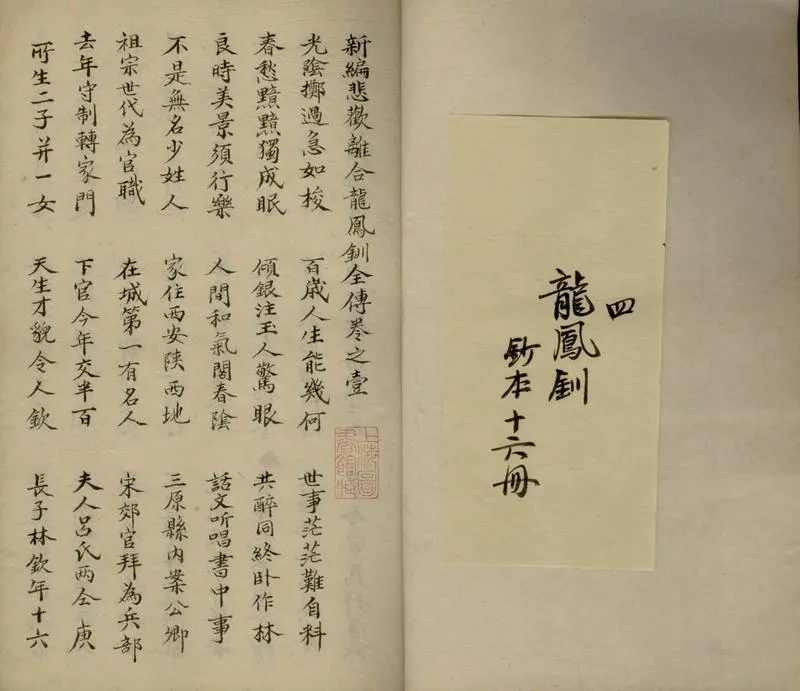 四
龍鳳釧
鈔本十六冊
新編悲歡離合龍鳳釧全傳卷之壹
光陰擲過急如梭 百歲人生能幾何 世事茫茫難自料
春愁黯黯獨成眠 傾銀注玉人驚眼 共醉同終卧作林
良時美景須行樂 人間和氣閣春陰 話文听唱書中事
不是無名少姓人 家住西安陝西地 三原縣內案公卿
祖宗世代為官職 在城第一有名人 宋郊官拜為兵部
去年守制轉家門 下官今年交半百 夫人呂氏兩仝庚
所生二子并一女 天生才貌令人欽 長子林欽年十六
上海圖書館藏